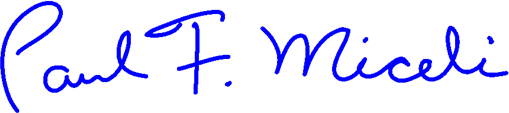 Paul F. Miceli